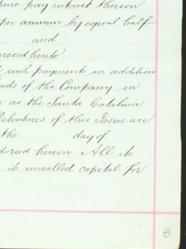 pay interest thereon
per annum by equal half
and
such payments in addition
of the Company in
as the Santa Catalina
Debentures of this Issue are
the day of
hereon All its
its uncalled capital for
8